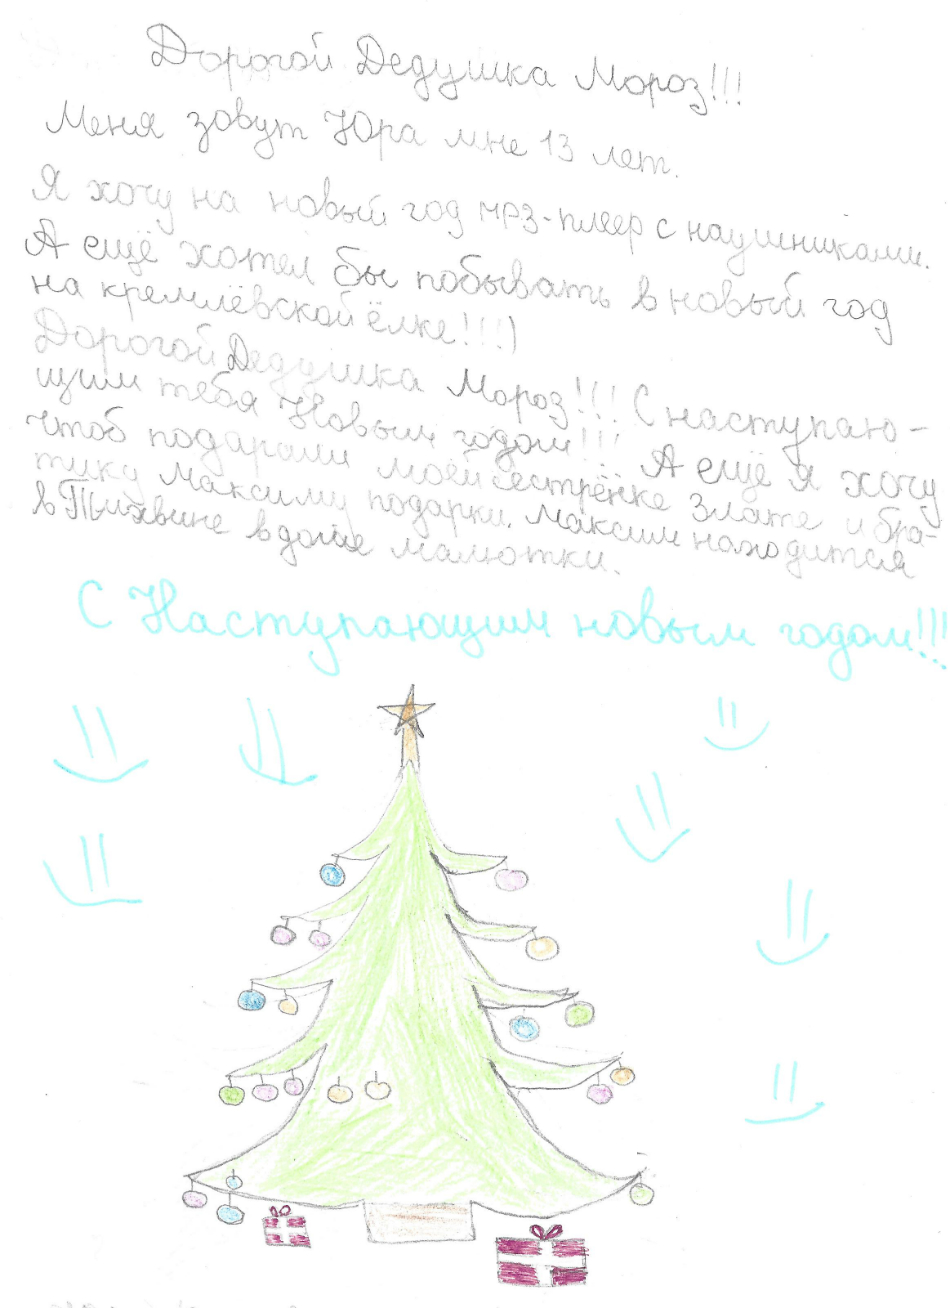 Дорогой Дедушка Мороз!!!
Меня зовут Юра мне 13 лет.
Я хочу на новый год мр3-плеер с наушниками.
А ещё хотел бы побывать в новый год
на кремлёвской ёлке!!!)
Дорогой Дедушка Мороз!!! С наступаю-
щим тебя Новым годом!!! А ещё я хочу
чтоб подарили моей сестрёнке Злате и бра-
тику Максиму подарки. Максим находится
в Тихвине в доме малютки.
С Наступающим новым годом!!!